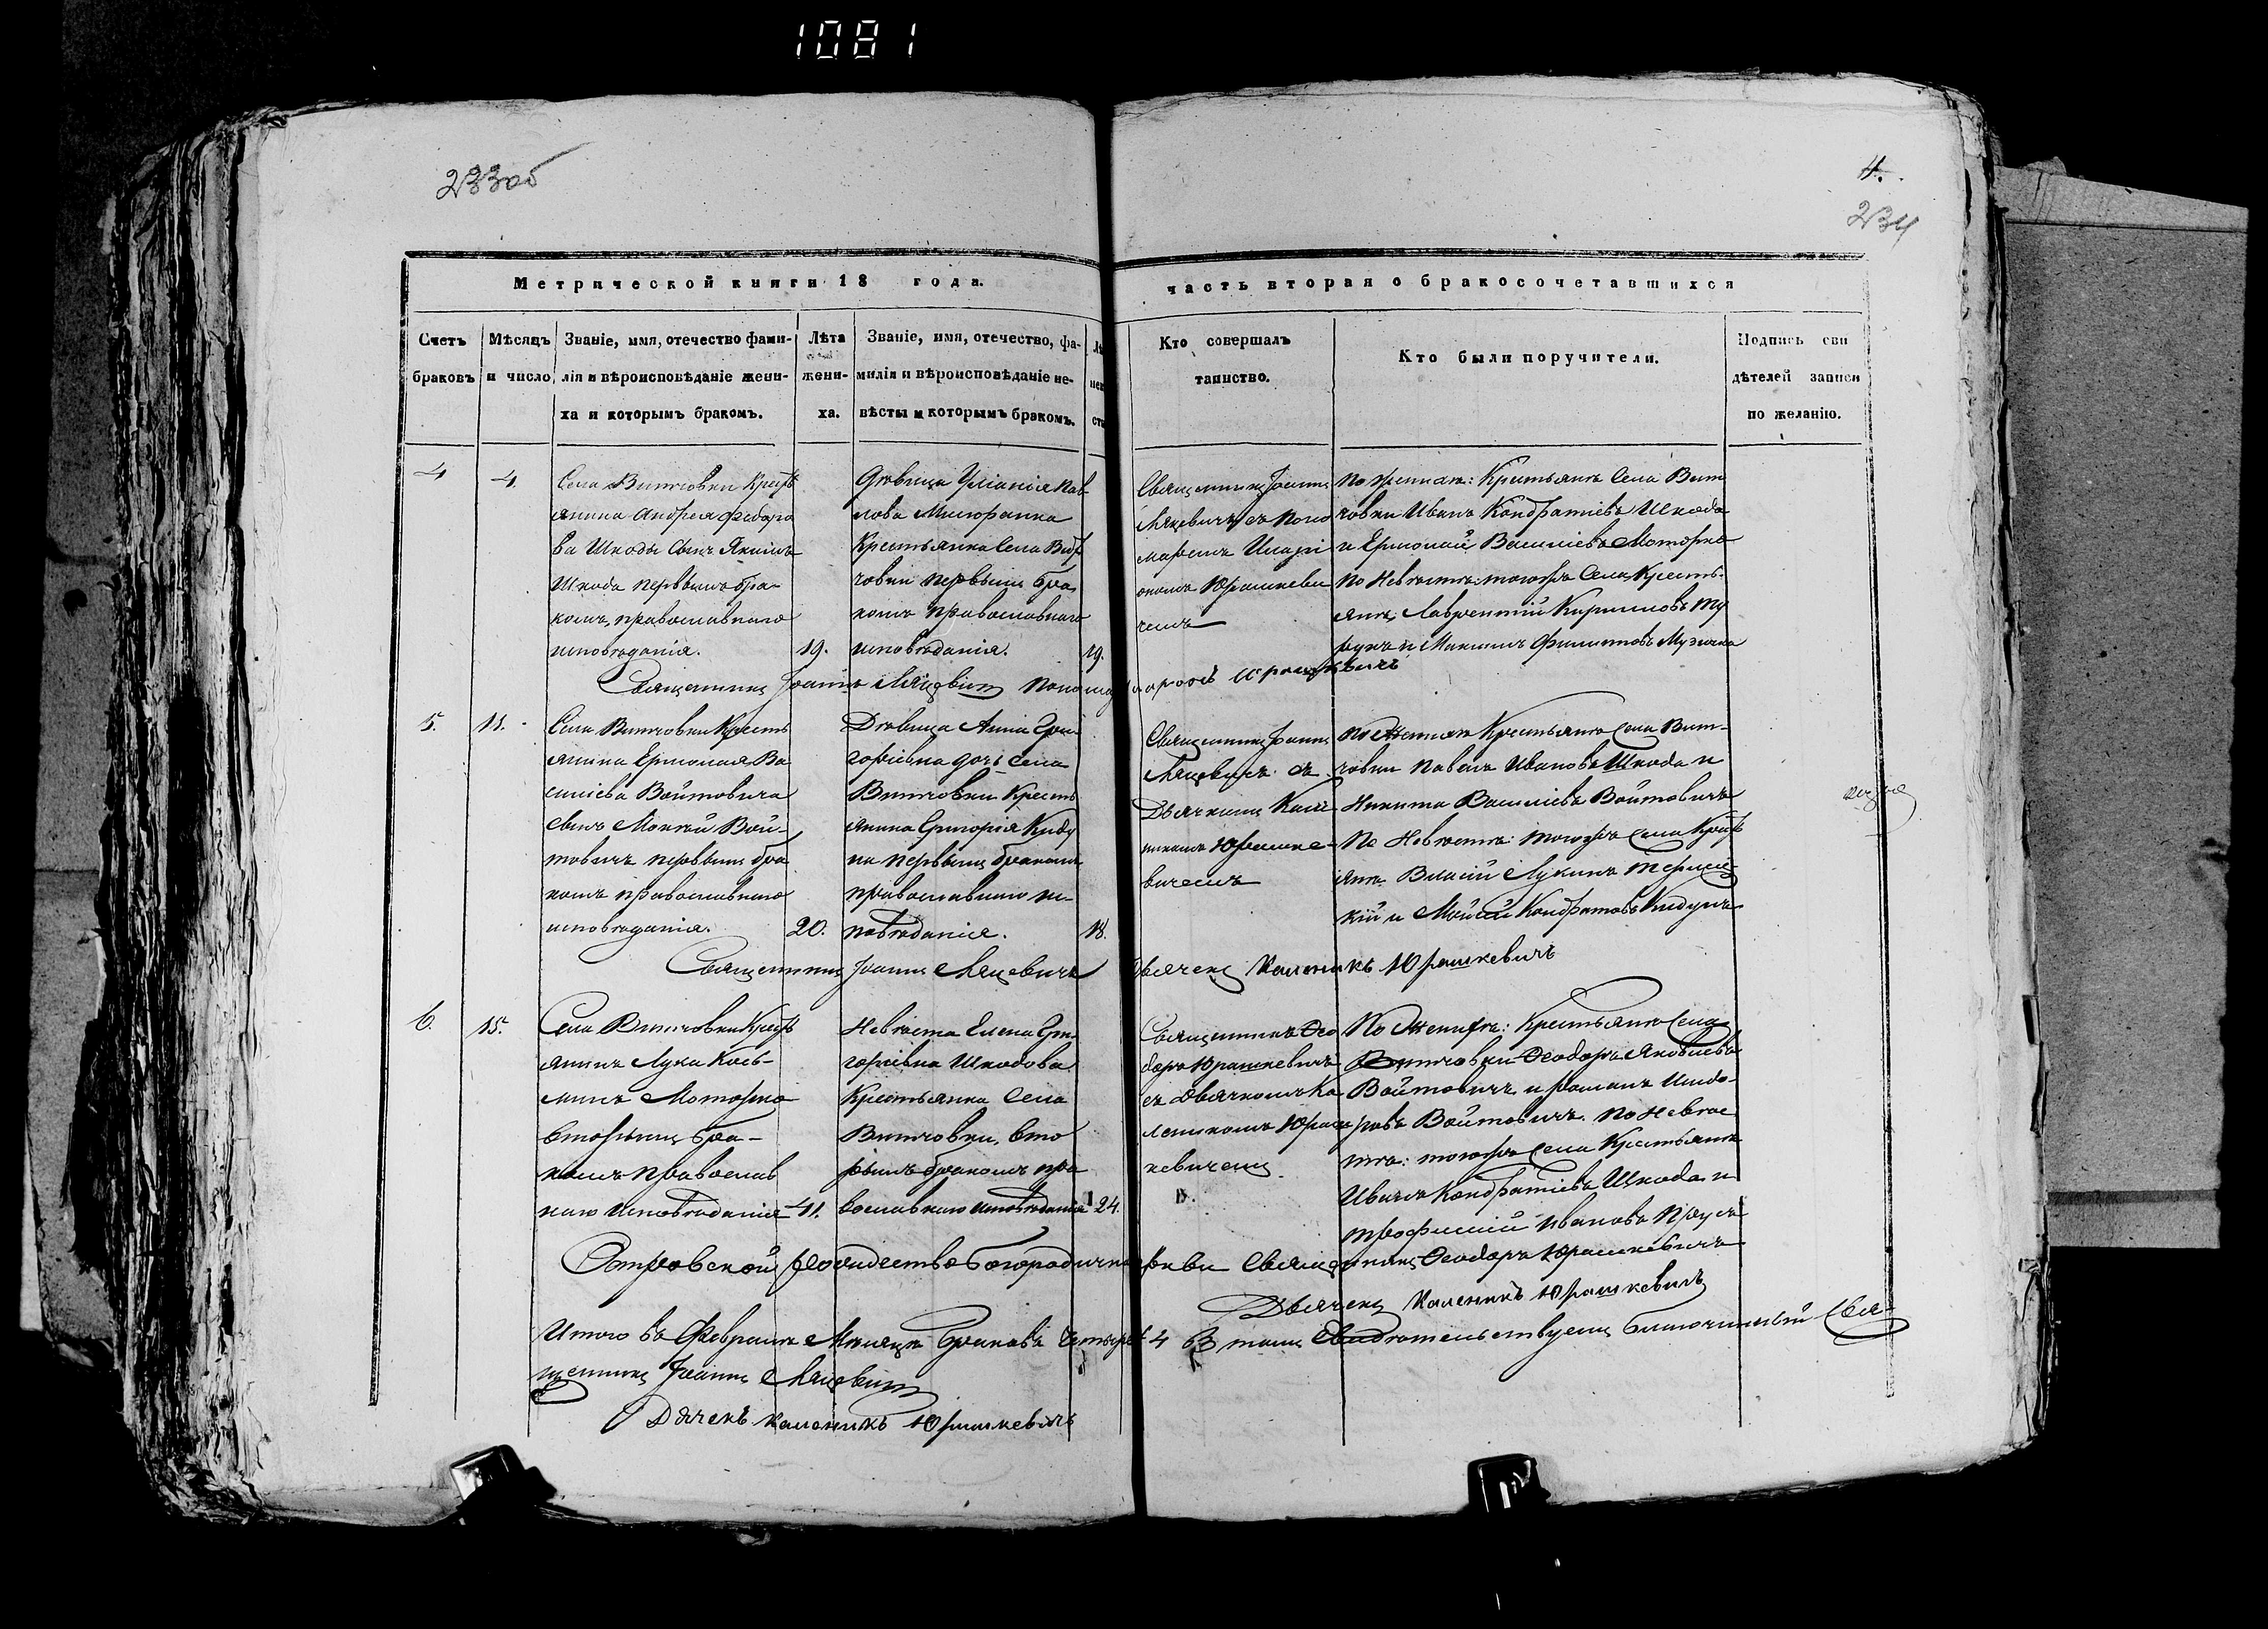 1081
233об
4.
234
Метрической книги 18 года.
часть вторая о бракосочетавшихся
Счетъ браковъ
Мѣсяцъ и число
Званіе, имя, отечество фами-
лія и вѣроисповѣданіе жени-
ха и которымъ бракомъ.
Лѣта
жени-
ха.
Званіе, имя, отечество, фа-
милія и вѣроисповѣданіе не-
вѣсты и которымъ бракомъ.
Кто совершалъ
таинство.
Кто были поручители.
Подпись сви
дѣтелей записи
по желанію.
4
4.
Села Витчовки Кресть
янина Андрея Федоро
ва Шкоды Сынъ Якимъ
Шкода первымъ бра-
комъ, православнаго
исповѣданія.
19.
Дѣвица Уліанія Пав
лова
Крестьянка Села Вит
човки первымъ бра
комъ православнаго
исповѣданія.
19.
Священникъ Іоаннъ
Мацевичъ съ Поно
маремъ Иларі
ономъ Юрашкеви
чемъ
По женихѣ: Крестьяне Села Вит
човки Иванъ Кондратіевъ Шкода
и Ермолай Василіевъ Моторко
По Невѣстѣ: тогожъ Села Кресть-
яне, Лаврентій Кириловъ
и Максимъ Филиповъ
Священникъ Іоаннъ Мацевичъ
5.
11.
Села Витчовки Кресть
янина Ермолая Ва
силіева Войтовича
сынъ Мокей Вой-
товичъ первымъ бра
комъ православнаго
исповѣданія.
20.
Дѣвица Анна Гри
горіевна дочь села
Витчовки Кресть
янина Григорія Киду
на первымъ бракомъ
православнаго ис-
повѣданія.
18.
Священникъ Іоаннъ
Мацевичъ съ
Дьячкомъ Кале-
никомъ Юрашке-
вичемъ
По Женихѣ Крестьяне Села Вит-
човки Павелъ Ивановъ Шкода и
Никита Василіевъ Войтовичъ
По Невѣстѣ: тогожъ Села Кресть
яне Власій Лукинъ
кій и Мойсей Кондратовъ Кидунъ
Священникъ Іоаннъ Мацевичъ Дьячекъ Каленикъ Юрашкевичъ
6.
15.
Села Витчовки Кресть
янинъ Лука Кось-
минъ Моторко
вторымъ бра-
комъ православ
наго исповѣданія
41.
Невѣста Елена Гри-
горіевна Шкодова
Крестьянка Села
Витчовки, вто
рымъ бракомъ пра
вославнаго исповѣданія
24.
Священникъ Ѳео
доръ Юрашкевичъ
съ Дьячкомъ Ка
леникомъ Юраш
кевичемъ
По Женихѣ: Крестьяне Села
Витчовки Ѳеодоръ Яковлевъ
Войтовичъ и Романъ Исидо-
ровъ Войтовичъ. По Невѣс
тѣ: тогожъ Села Крестьяне
Иванъ Кондратіевъ Шкода и
Трофимій Ивановъ
Островской Рождество Богородичной церкви Священникъ Ѳеодоръ Юрашкевичъ
Дьячекъ Каленикъ Юрашкевичъ
Итого въ Февралѣ Мѣсяцѣ браковъ четыре 4 въ томъ Свидѣтельствуемъ благочинный Свя-
щенникъ Іоаннъ Мацевичъ
Дячекъ Каленикъ Юрашкевичъ